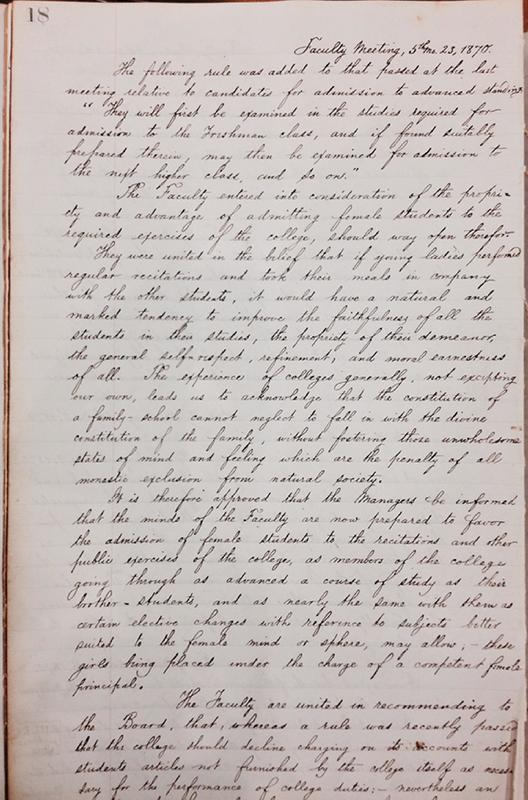 18
Faculty Meeting, 5th mo. 23, 1870.
The following rule was added to that passed at the last
meeting relative to candidates for admission to advanced standing.
"They will first be examined in the studies required for
admission to the Freshman class, and if found suitably
prepared therein, may then be examined for admission to
the next higher class, and so on."
The Faculty entered into consideration of the propri-
ety and advantage of admitting female students to the
required exercises of the college, should way open therefor.
They were united in the belief that if young ladies performed
regular recitations and took their meals in company
with the other students, it would have a natural and
marked tendency to improve the faithfulness of all the
students in their studies, the propriety of their demeanor,
the general self-respect, refinement, and moral earnestness
of all. The experience of colleges generally, not excepting
our own, leads us to acknowledge that the constitution of
a family-school cannot neglect to fall in with the divine
constitution of the family, without fostering those unwholesome
states of mind and feeling which are the penalty of all
monastic exclusion from natural society.
It is therefore approved that the Managers be informed
that the minds of the Faculty are now prepared to favor
the admission of female students to the recitations and other
public exercises of the college, as members of the college
going through as advanced a course of study as their
brother-students, and as nearly the same with them as
certain elective changes with reference to subjects better
suited to the female mind or sphere, may allow; - these
girls being placed under the charge of a competent female
principal.
The Faculty are united in recommending to
the Board, that, whereas a rule was recently passed
that the college should decline charging on its accounts with
students articles not furnished by the college itself as neces-
sary for the performance of college duties; - nevertheless an